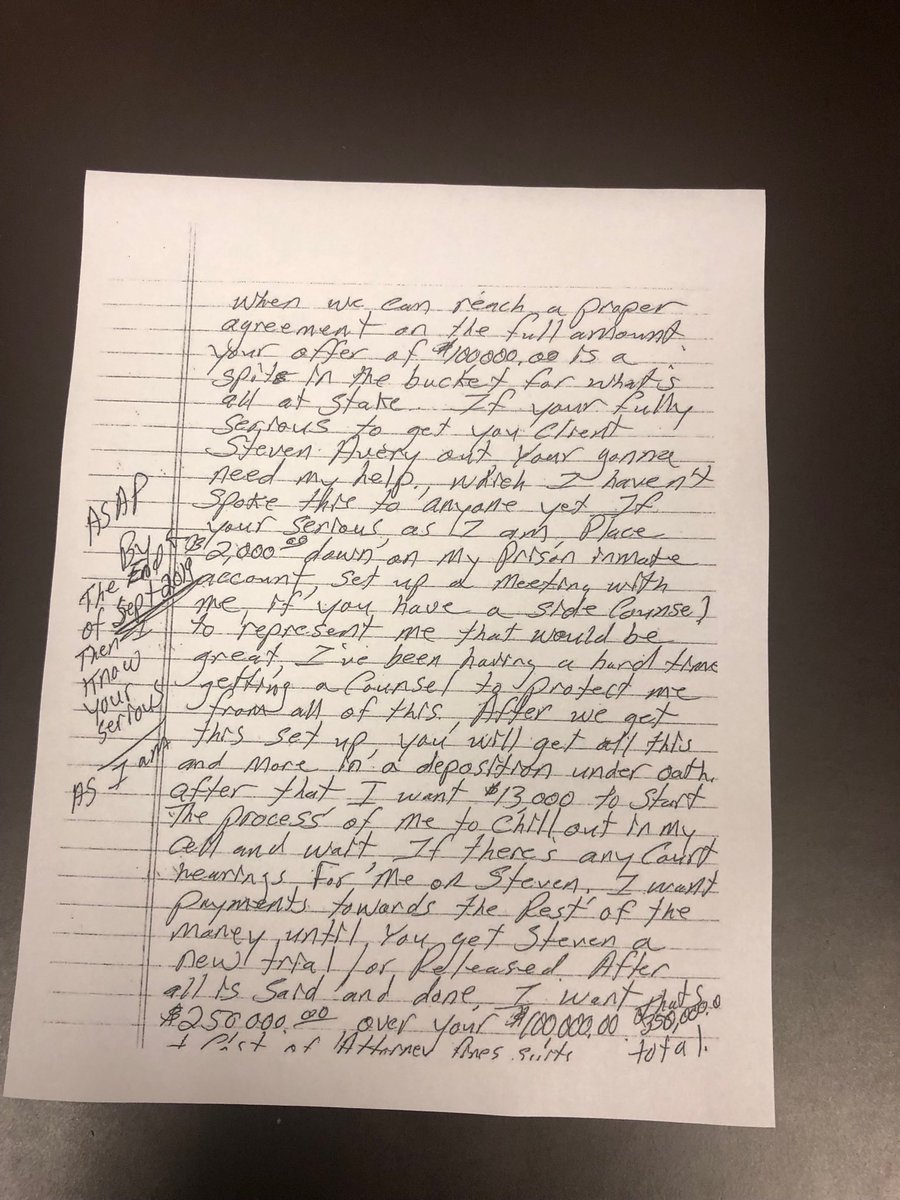 When we can reach a proper
agreement on the full amount
your offer of $100000.00 is a
spit in the bucket for what's
all at stake. If your fully
serious to get you client
Steven Avery out your gonna
need my help, which I haven't
spoke this to anyone yet If
your serious, as I am, Place
$2,000.00 down on my prison inmate
account, set up a meeting with
me, if you have a side Counsel
to represent me that would be
great, I've been having a hard time
getting a Counsel to protect me
from all of this. After we get
this set up, you will get all this
and more in a deposition under oath.
after that I want $13,000 to start
The process of me to chill out in my
cell and wait If there's any Court
hearings For Me or Steven. I want
payments towards the Rest of the
money until you get Steven a
new trial/or Released After
all is said and done, I want thats
$250,000.00 over your $100,000.00 350,000.0
of Attorney total.
ASAP
By
The End
of Sept 2019
Then I
Know
your
serious
AS I am